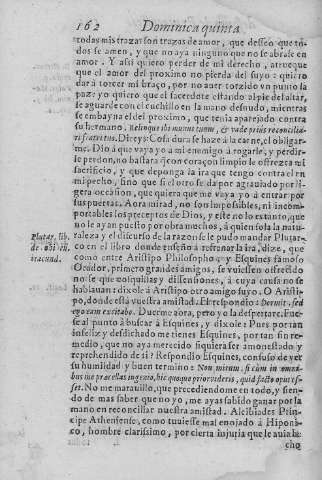 162 Dominica quinta
todas mis trazas son trazas de amor, que desseo que to-
dos se amen, y que no aya ninguno que no se abrase en
amor. Y assi quiero perder de mi derecho, atrueque
que el amor del proximo no pierda del suyo: quiero
dara torcer mi braço, por no auer torzido vn punto la
paz: yo quiero que el sacerdote estando al pie del altar,
se aguarde con el cuchillo en la mano desnudo, mientras
se embayna el del proximo, que tenia aparejado contra
su hermano. Relinque ibi munus tuum, & vade prius reconcilia-
ri fratri tuo. Direys: Cosa dura se haze à la carne, el obligar-
me Dio à que vaya yo a mi enemigo à rogarle, y pedir-
le perdon, no bastara que con coraçon limpio le ofrezca mi
sacrificio, y que deponga la ira que tengo contra el en
mi pecho, sino que si el otro se da por agrauiado por li-
gera occasion, que quiera que me vaya yo à entrar por
sus puertas. Aora mirad, no son impossibles, ni incom-
portables los preceptos de Dios, y este no lo es tanto, que
no le ayan puesto por obra muchos, à quien sola la natu-
raleza y el discurso de la razon se le pudo mandar Plutar-
co en el libro donde enseña à refrenar la ira, dize, que
como entre Aristipo Philosopho, y Esquines famoso
Orador, primero grandes amigos, se vuiessen ofrecido
no se que cosquillas y dissensiones, à cuya causa no se
hablauan: dixole à Aristipo otro amigo suyo. O Aristi-
po, donde està vuestra amistad. El respondio: Dormit, sed
ego eam excitabo. Duerme aora, pero yo la despertare. Fue-
se al punto à buscar à Esquines, y dixole: Pues por tan
infelix y desdichado me tienes Esquines, por tan sin re-
medio, que no aya merecido siquiera ser amonestado y
reprehendido de ti? Respondio Esquines, confuso de ver
su humildad y buen termino: Non mirum, si cùm in omni-
bus me præcellas ingenio, hic quoque prior videris, quid facto opus es-
set. No me marauillo, que precediendome en todo, y sien-
do de mas saber que no yo, me ayas sabido ganar por la
mano en reconciliar nuestra amistad. Alcibiades Prin-
cipe Atheniense, como tuuiesse mal enojado à Hiponi-
co, hombre clarissimo, por cierta injuria que le auia he-
cho
Plutar. lib.
iracund.